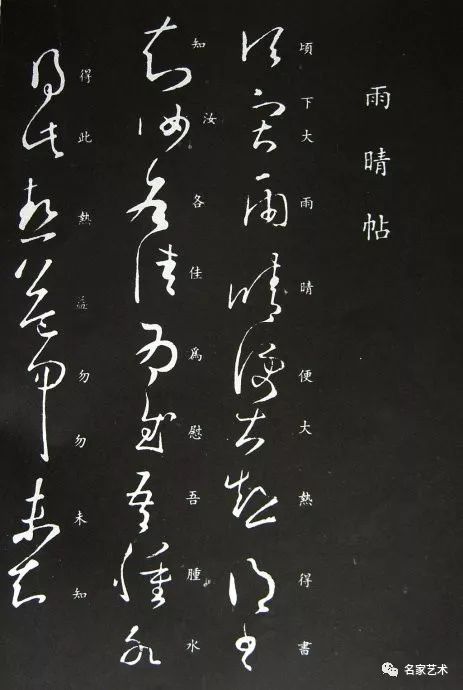 雨晴帖
頃下大雨晴便大熱得書
知汝各佳爲慰吾腫水
得此熱益勿勿未知
名家艺术